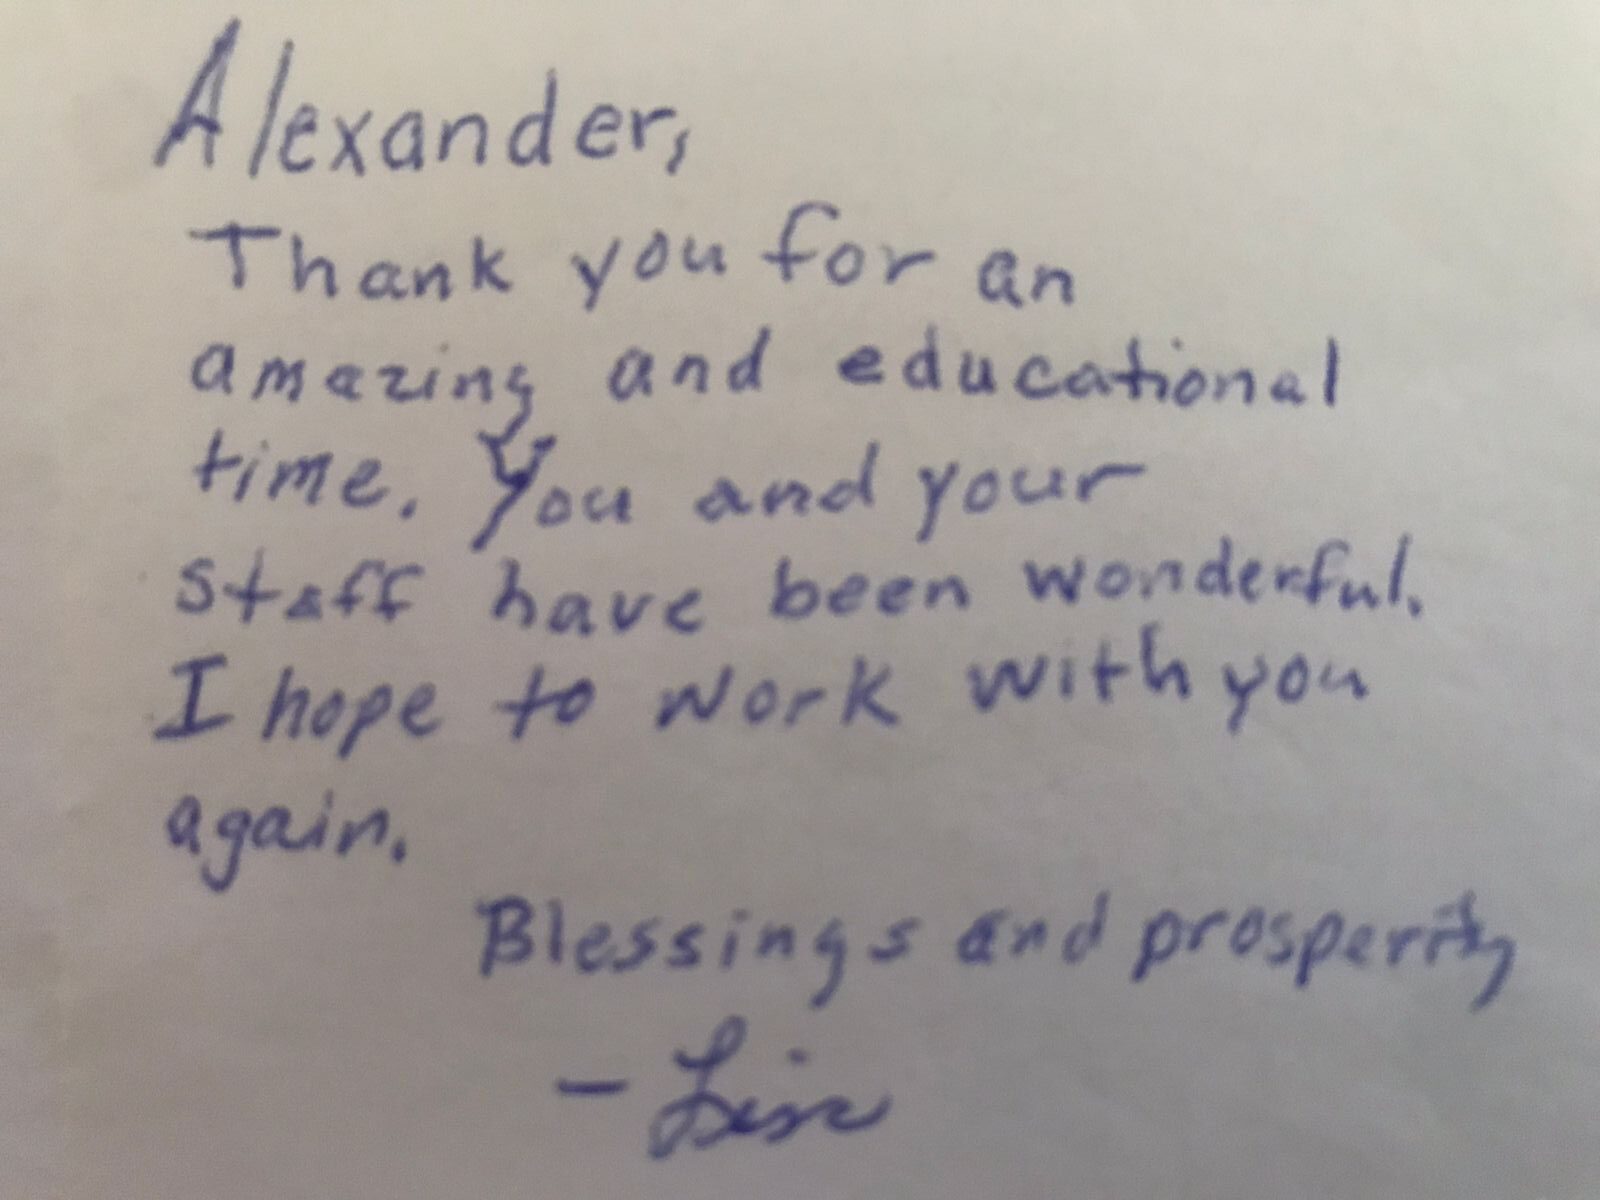 Alexander,
Thank you for an
amazing and educational
time. You and your
staff have been wonderful.
I hope to work with you
again.
Blessings and prosperity
- Lisa